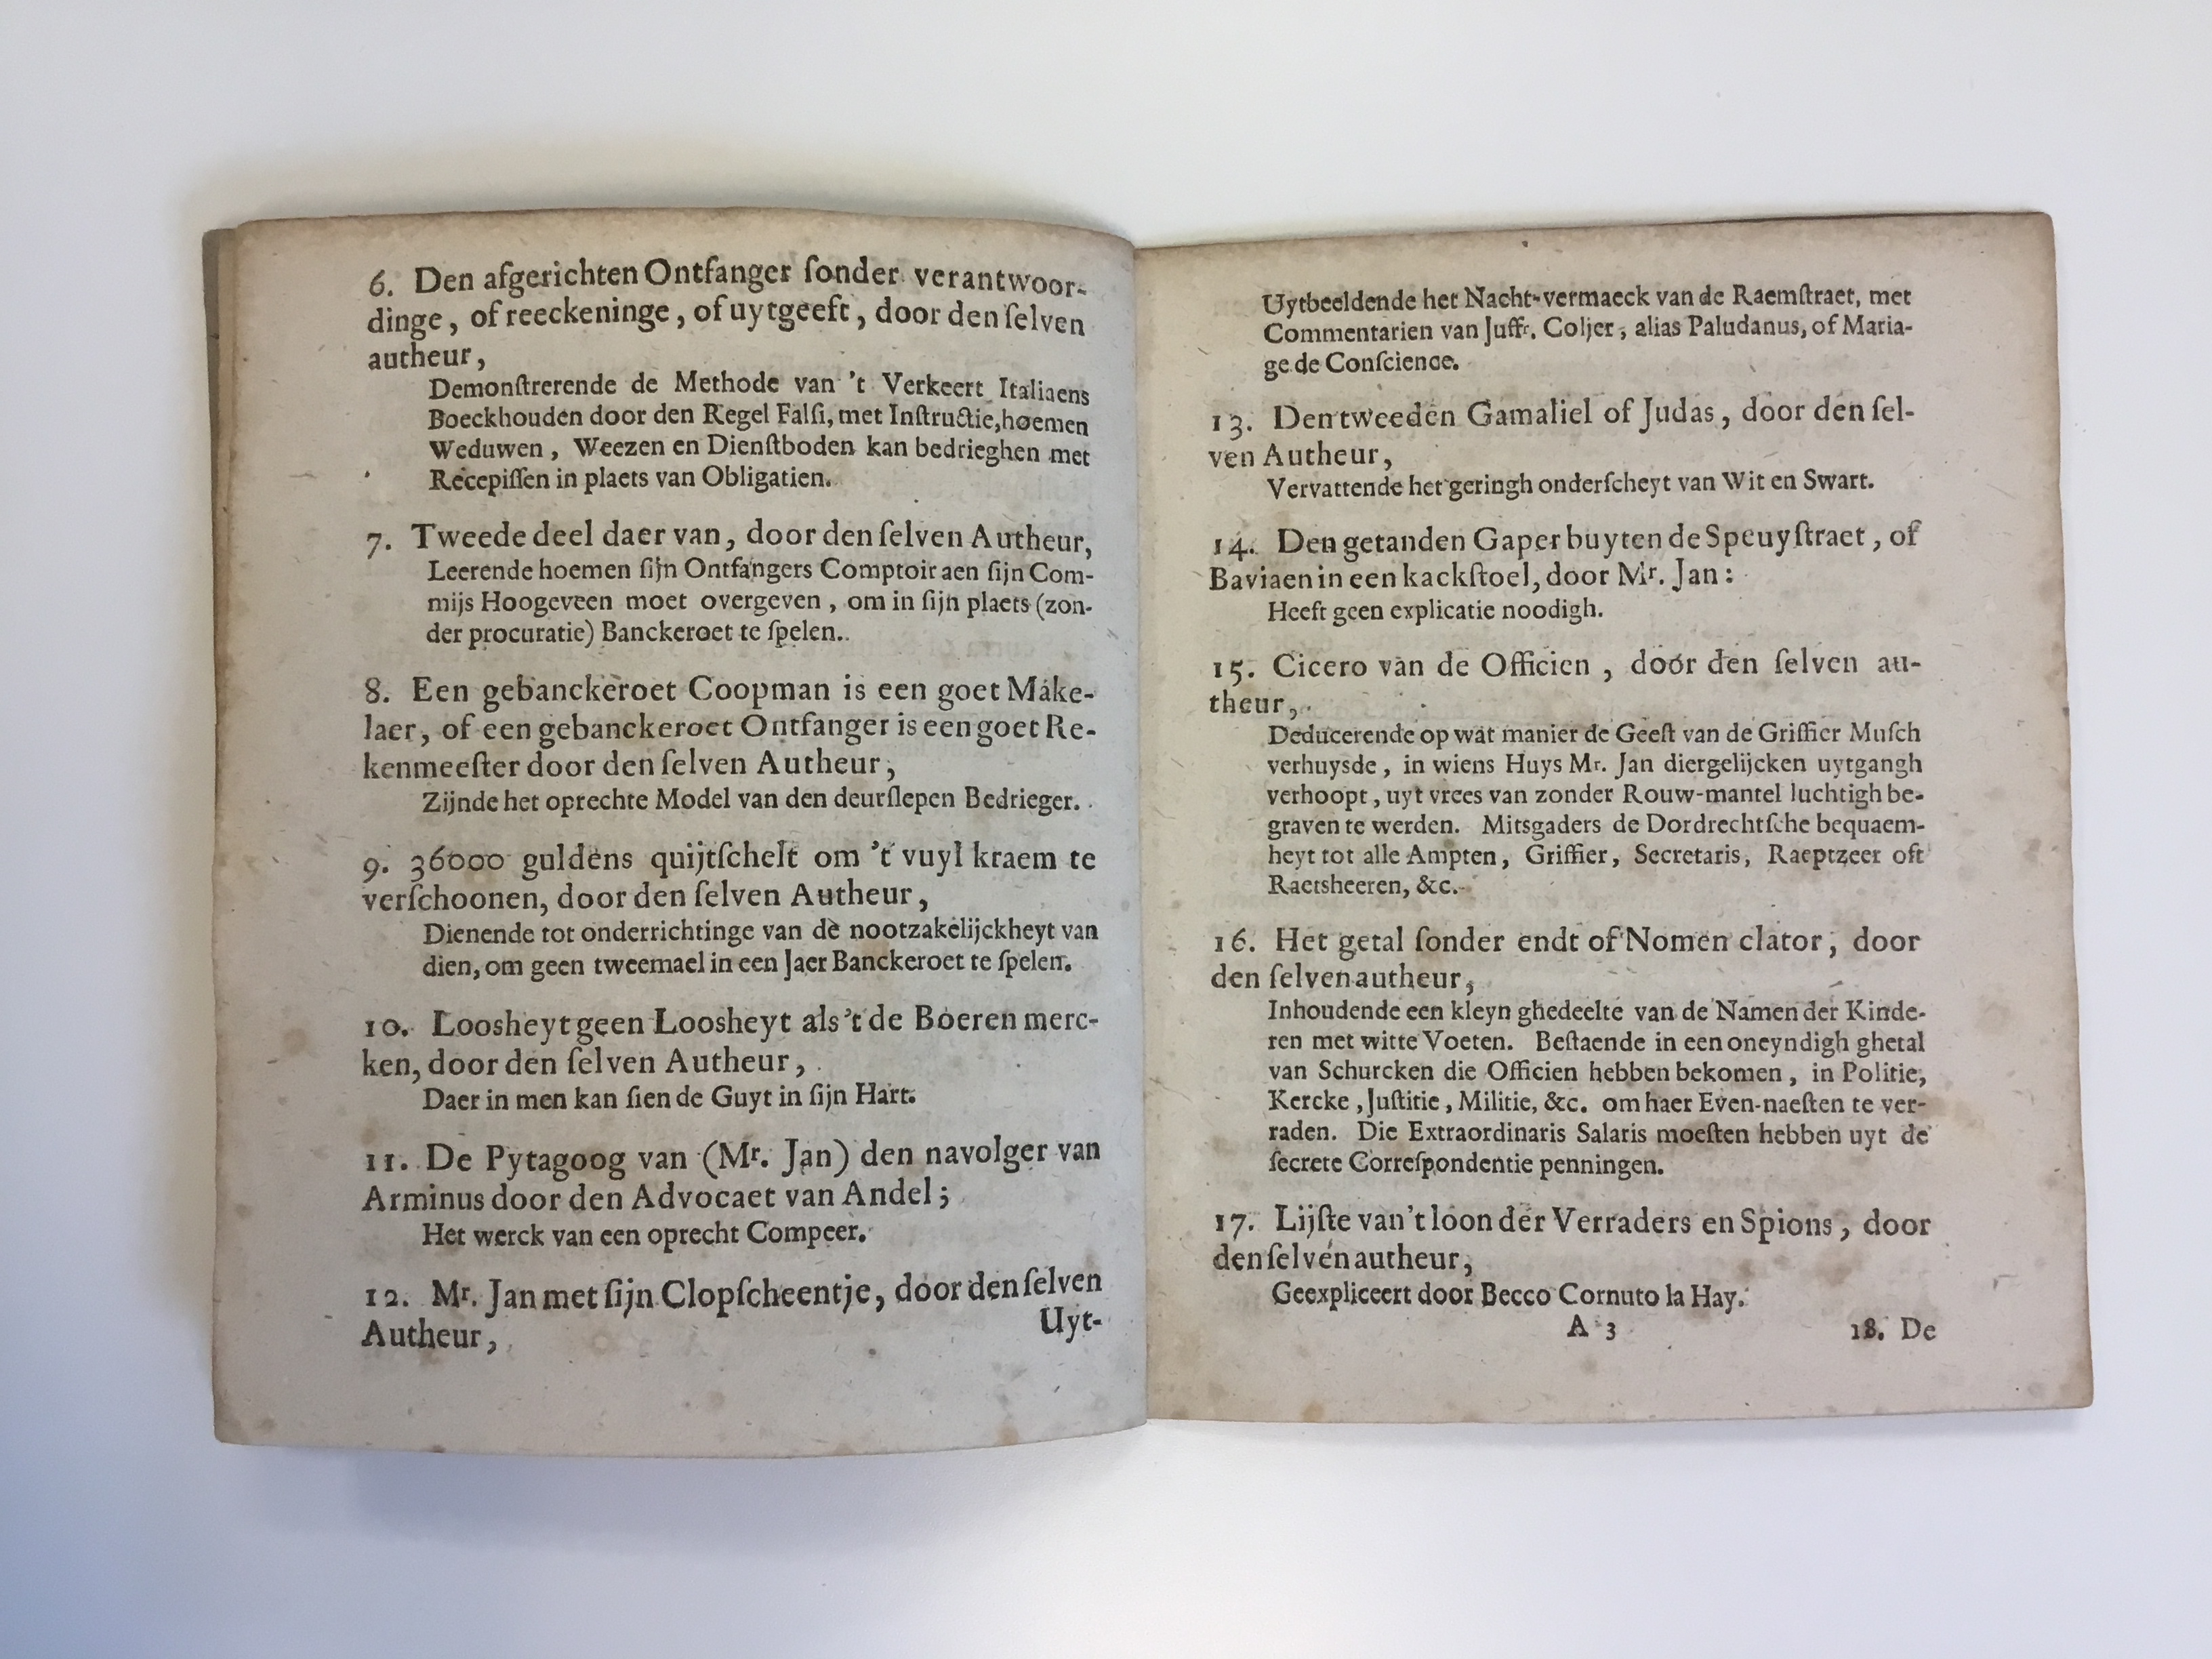 6. Den afgerichten Ontfanger ſonder verantwoor-
dinge, of reeckeninge, of uytgeeft, door den ſelven
autheur,
Demonſtrerende de Methode van 't Verkeert Italiaens
Boeckhouden door den Regel Falſi, met Inſtructie, hoemen
Weduwen, Weezen en Dienſtboden kan bedrieghen met
Recepiſſen in plaets van Obligatien.
7. Tweede deel daer van, door den ſelven Autheur,
Leerende hoemen ſijn Ontfangers Comptoir aen ſijn Com-
mijs Hoogeveen moet overgeven, om in ſijn plaets (zon-
der procuratie) Banckeroet te ſpelen.
8. Een gebanckeroet Coopman is een goet Make-
laer, of een gebanckeroet Ontfanger is een goet Re-
kenmeeſter door den ſelven Autheur,
Zijnde het oprechte Model van den deurſlepen Bedrieger.
9. 36000 guldens quijtſchelt om 't vuyl kraem te
verſchoonen, door den ſelven Autheur,
Dienende tot onderrichtinge van de nootzakelijckheyt van
dien, om geen tweemael in een Jaer Banckeroet te ſpelen.
10. Loosheyt geen Loosheyt als 't de Boeren merc-
ken, door den ſelven Autheur,
Daer in men kan ſien de Guyt in ſijn Hart.
11. De Pytagoog van (Mr. Jan) den navolger van
Arminus door den Advocaet van Andel;
Het werck van een oprecht Compeer.
12. Mr. Jan met ſijn Clopſcheentje, door den ſelven
Autheur,
Uyt-
Uytbeeldende het Nacht-vermaeck van de Raemſtraet, met
Commentarien van Juffr. Coljer, alias Paludanus, of Maria-
ge de Conſcience.
13. Den tweeden Gamaliel of Judas, door den ſel-
ven Autheur,
Vervattende het geringh onderſcheyt van Wit en Swart.
14. Den getanden Gaper buyten de Speuyſtraet, of
Baviaen in een kackſtoel, door Mr. Jan:
Heeft geen explicatie noodigh.
15. Cicero van de Officien, door den ſelven au-
theur,
Deducerende op wat manier de Geeſt van de Griffier Muſch
verhuysde, in wiens Huys Mr. Jan diergelijcken uytgangh
verhoopt, uyt vrees van zonder Rouw-mantel luchtigh be-
graven te werden. Mitsgaders de Dordrechtſche bequaem-
heyt tot alle Ampten, Griffier, Secretaris, Raeptzeer oft
Raetsheeren, &c.
16. Het getal ſonder endt of Nomen clator, door
den ſelven autheur,
Inhoudende een kleyn ghedeelte van de Namen der Kinde-
ren met witte Voeten. Beſtaende in een oneyndigh ghetal
van Schurcken die Officien hebben bekomen, in Politie,
Kercke, Juſtitie, Militie, &c. om haer Even-naeſten te ver-
raden. Die Extraordinaris Salaris moeſten hebben uyt de
ſecrete Correſpondentie penningen.
17. Lijſte van 't loon der Verraders en Spions, door
den ſelven autheur,
Geexpliceert door Becco Cornuto la Hay.
A 3
18. De